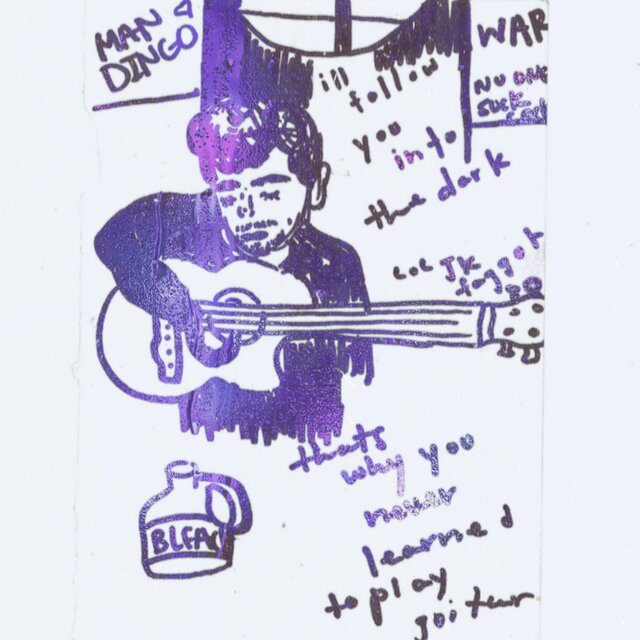 MAN
DINGO
WAR
NO ONE
SUCK
ill
follow
you
into
the dark
LOL JK
faggot
thats
why you
never
learned
to play
guitar
BLEAC